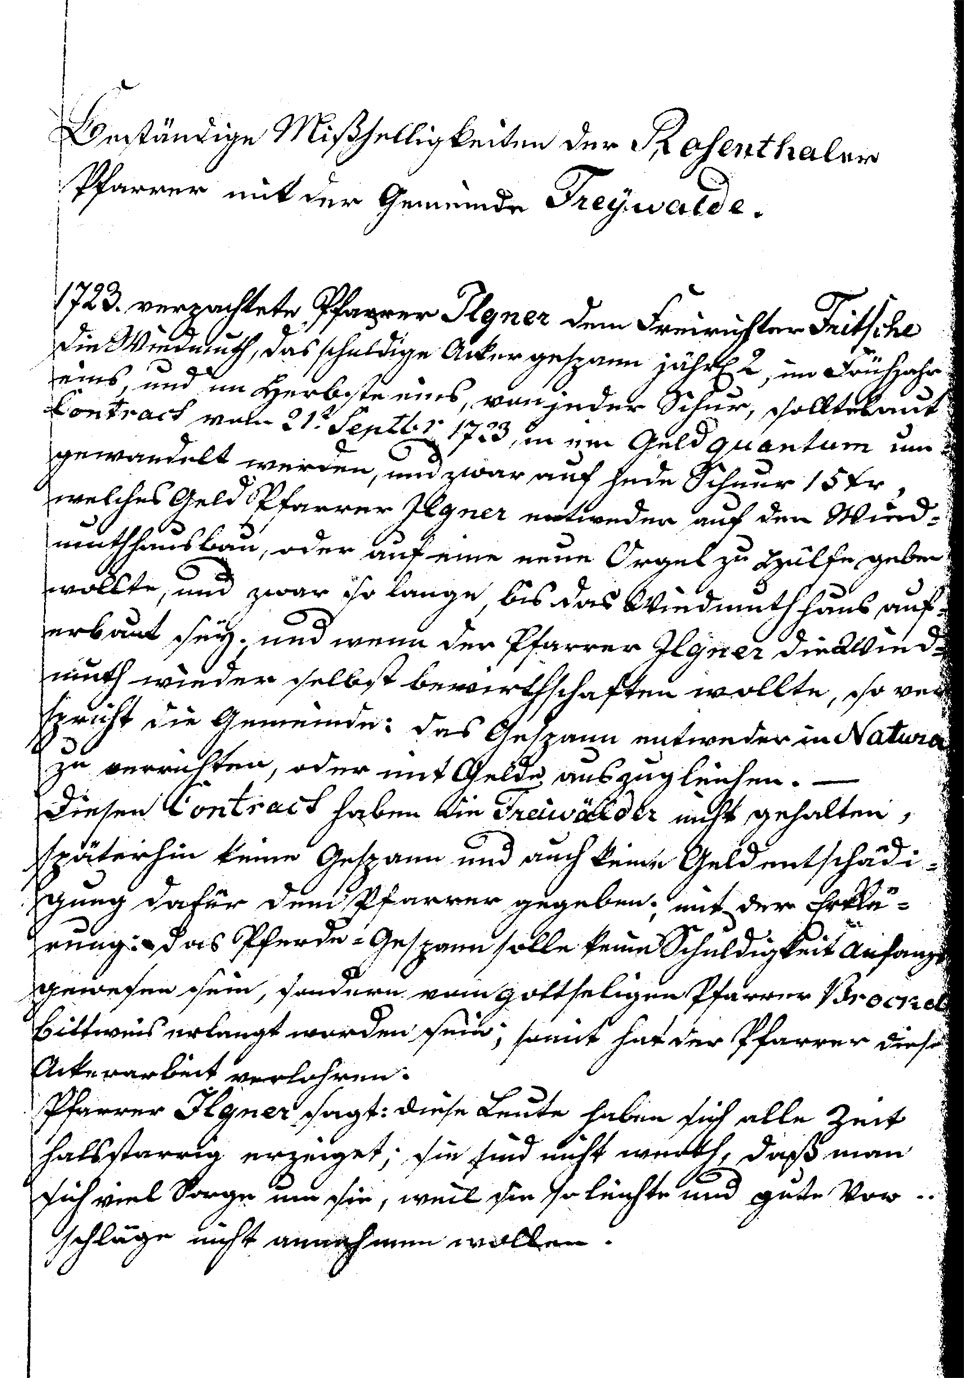 Beständige Mißhelligkeiten der Rosenthaler
Pfarrer mit der Gemeinde Freÿwalde.
1723. verpachtete Pfarrer Ilgner dem Freirichter Fritsche
die Wiedmuth, das schuldige Ackergespann jährl. 2, im Frühjahr
eins, und im Herbste eins, von jeder Schur, sollte laut
Contract vom 21t Septbr 1723, in ein Geldquantum um=
gewandelt werden, und zwar auf jede Schuur 15 kr,
welches Geld Pfarrer Ilgner entweder auf den Wied=
muthhausbau, oder auf eine neue Orgel zu Hülfe geben
wollte, und zwar so lange, bis das Wiedmuthhaus auf=
erbaut seÿ; und wenn der Pfarrer Ilgner die Wied=
muth wieder selbst bewirthschaften wollte, so ver
spricht die Gemeinde: das Gespann entweder in Natura
zu verrichten, oder mit Gelde auszugleichen. —
Diesen Contract haben die Freiwälder nicht gehalten,
späterhin keine Gespann und auch keine Geldentschädi=
gung dafür dem Pfarrer gegeben; mit der Erklä=
rung: das Pferde=Gespann solle keine Schuldigkeit Anfangs
gewesen sein, sondern vom gottseligen Pfarrer Brockel
bittweis erlangt worden sein; somit hat der Pfarrer diese
Ackerarbeit verlohren.
Pfarrer Ilgner sagt: diese Leute haben sich alle Zeit
halsstarrig erzeiget; sie sind nicht werth, daß man
sich viel Sorge um sie, weil sie so leichte und gute Vor=
schläge nicht annehmen wollen.